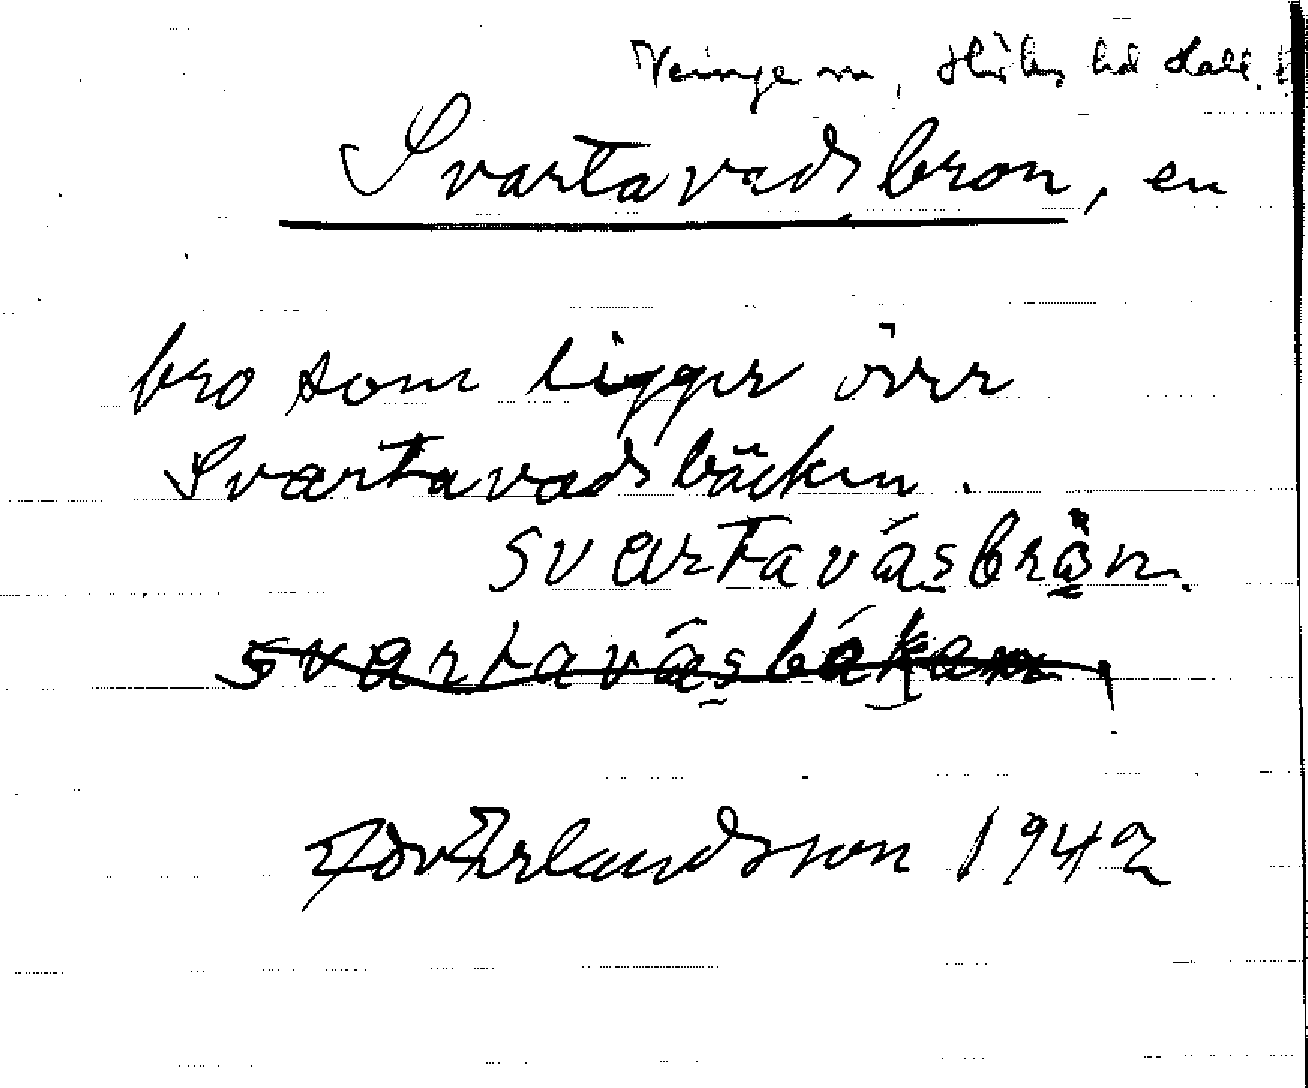 Veinge sn, Höks hd Hall.
Svartavadsbron, en
bro som ligger över
Svartavadsbäcken.
svartavásbrön.
svartavásbäkan,
Edv Erlandsson 1942